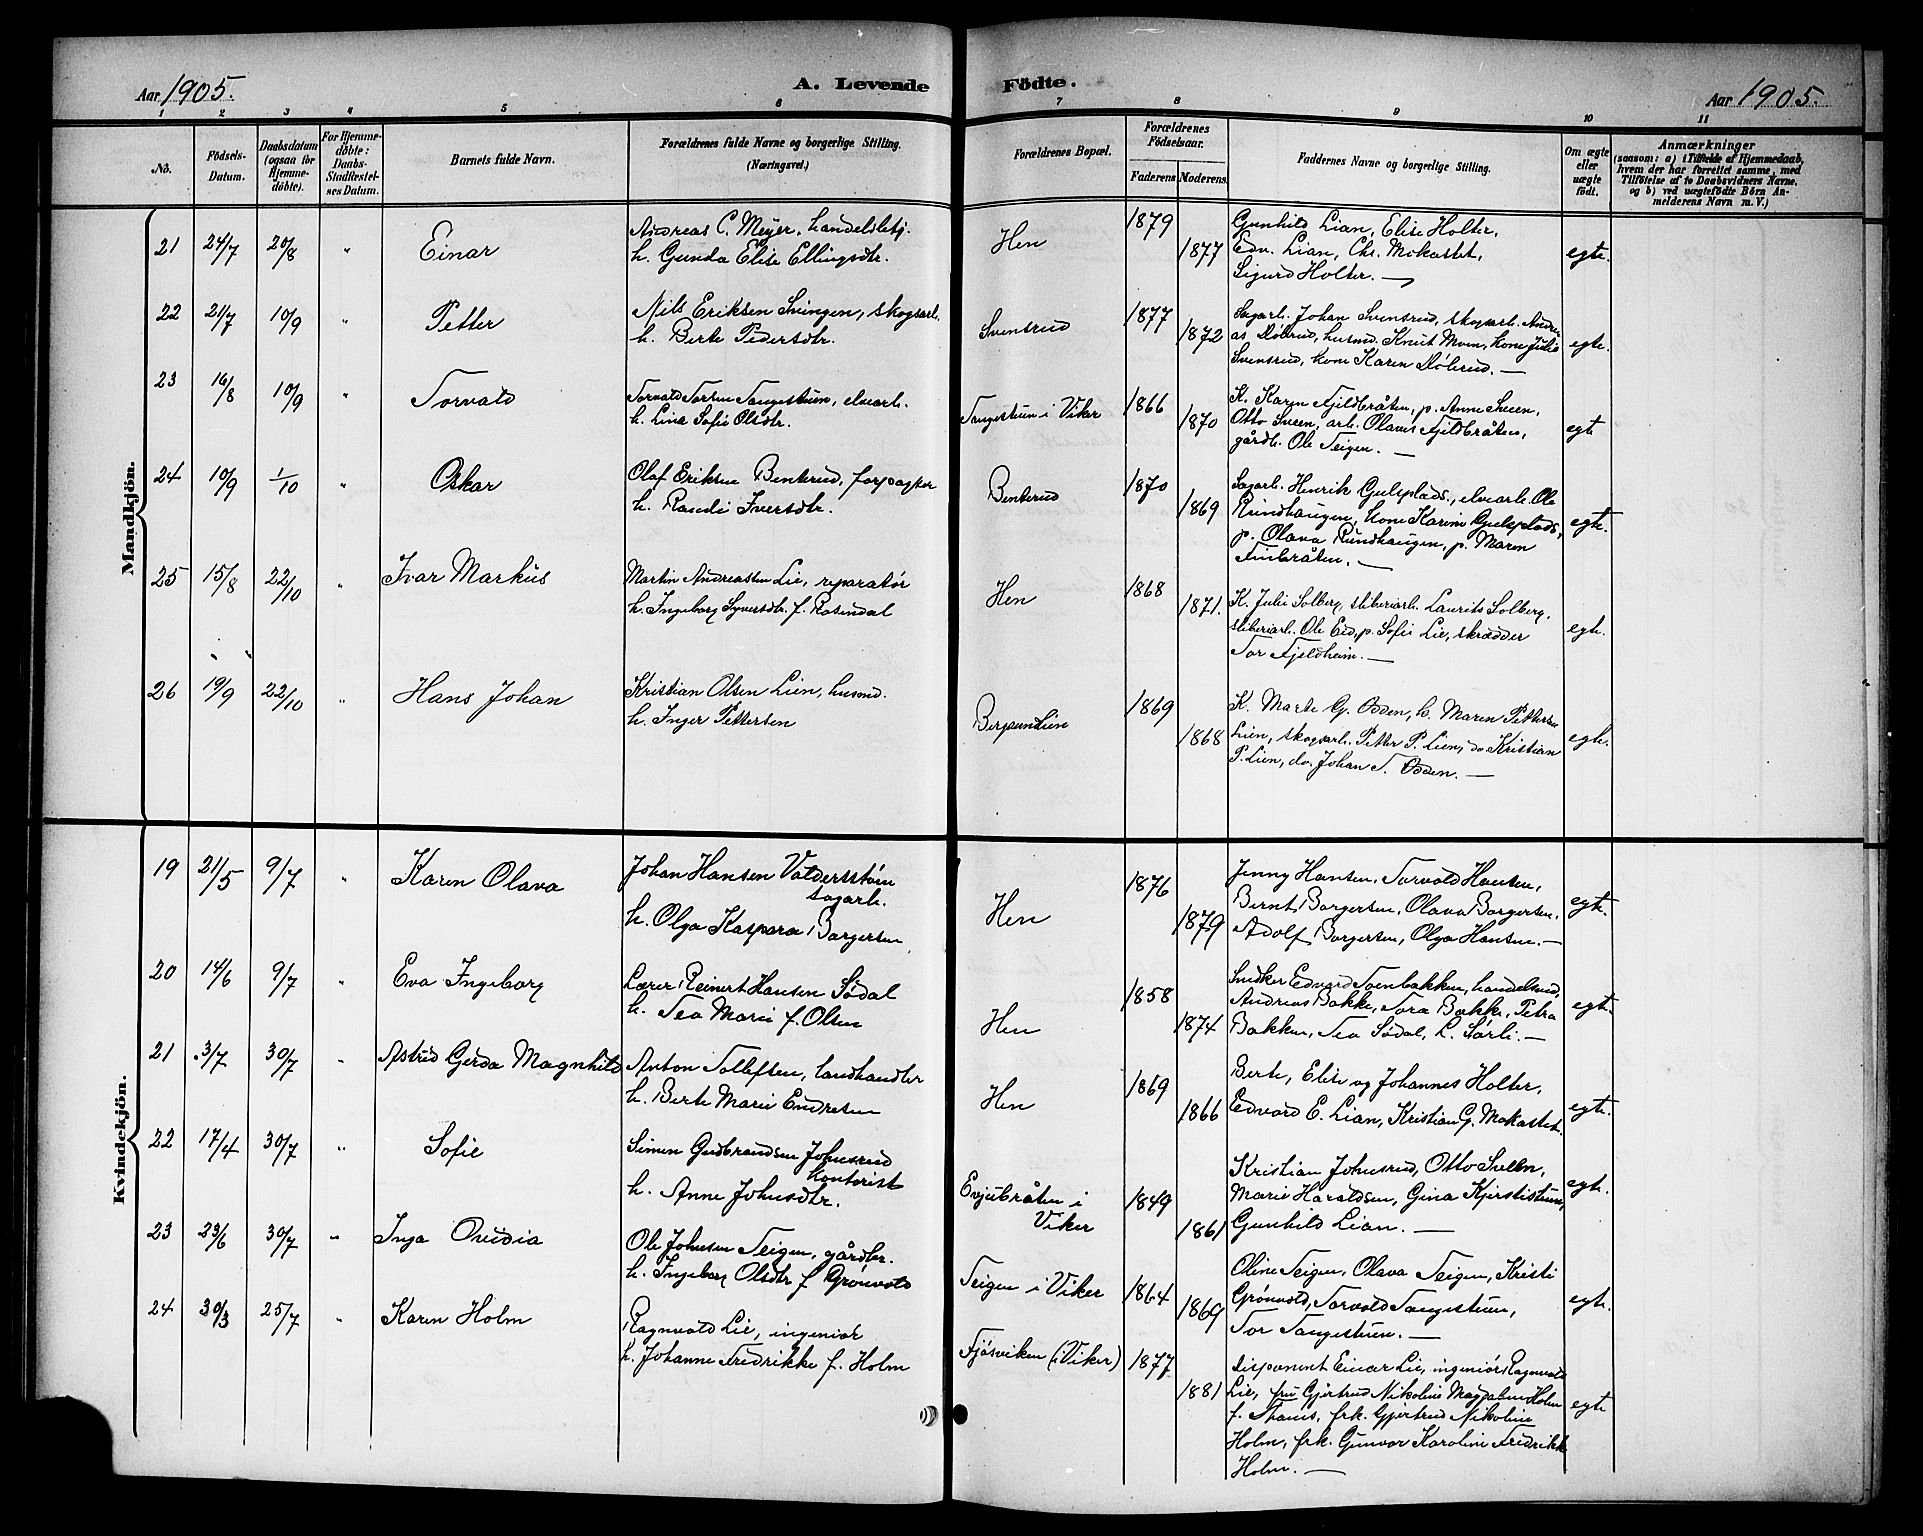 Aar 1905.
A. Levende
Födte.
Aar 1905.
1 2 3 4 5 6 7 8 9 10 11
No.
Födsels-Datum.
Daabsdatum (ogsaa for Hjemme-döbte).
For Hjemme-döbte: Daabs-Stadfæstel-ses Datum.
Barnets fulde Navn.
Forældrenes fulde Navne og borgerlige Stilling. (Næringsvei.)
Forældrenes Bopæl.
Forældrenes Födselsaar.
Faderens. Moderens.
Faddernes Navne og borgerlige Stilling.
Om ægte eller uægte födt.
Anmærkninger
(saasom: a) i Tilfælde af Hjemmedaab,
hvem der har forrettet samme, med
Tilföielse af to Daabsvidners Navne,
og b) ved uægtefödte Börn An-
melderens Navn m. V.)
Mandkjön.
21 24/7 20/8 " Einar
Andreas C. Meyer, handelsbetj.
h. Gunda Elise Ellingsdtr.
Hen 1879 1877
Gunhild Lian, Elise Holter,
Edv. Lian, Chr. Mokastet,
Sigurd Holter. —
egte.
22 21/7 10/9 " Petter
Nils Eriksen Svingen, skogsarb.
h. Berte Pedersdtr.
Svensrud 1877 1872
Sagarb. Johan Svensrud, skogsarb. Andre-
as Döbrud, husmd. Knut Moen, kone Julie
Svensrud, kone Karen Döbrud. —
egte.
23 16/8 10/9 " Torvald
Torvald Torsen Tangestuen, elvearb.
h. Lina Sofie Olsdtr.
Tangestuen i Viker 1866 1870
K. Karen Fjeldbråten, p. Anne Sveen,
Otto Sveen, arb. Olavus Fjeldbråten,
gårdb. Ole Teigen. —
egte
24 10/9 1/10 " Oskar
Olaf Eriksen Benterud, forpagter
h. Randi Iversdtr.
Benterud 1870 1869
Sagarb. Henrik Gulsplads, elvearb. Ole
Rundhaugen, kone Karine Gulsplads,
p. Olava Rundhaugen, p. Maren
Finbråten. —
egte.
25 15/8 22/10 " Ivar Markus
Martin Andreassen Lie, reparatör
h. Ingeborg Syversdtr. f. Rosendal
Hen 1868 1871.
K. Julie Solberg, sliberiarb. Laurits Solberg,
sliberiarb. Ole Eid, p. Sofie Lie, skrædder
Tor Fjeldheim. —
egte.
26 19/9 22/10 " Hans Johan
Kristian Olsen Lien, husmd.
h. Inger Pettersen
1869 1868
K. Marte G. Odden, h. Maren Pettersen
Lien, skogsarb. Petter P. Lien, do Kristian
P. Lien, do. Johan T. Odden. —
egte.
Kvindekjön.
19 21/5 9/7 " Karen Olava
Johan Hansen Valdersstöen
sagarb.
h. Olga Kaspara Borgersen
Hen 1876 1879
Jenny Hansen, Torvald Hansen,
Bernt Borgersen, Olava Borgersen,
Adolf Borgersen, Olga Hansen. —
egte.
20 14/6 9/7 " Eva Ingeborg
Lærer Reinert Hansen Södal
h. Tea Marie f. Olsen
Hen 1858 1874
Snedker Edvard Toenbakken, handelsmd.
Andreas Bakke, Tora Bakke, Petra
Bakken, Tea Södal, L. Sörli. —
egte.
21 3/7 30/7 " Astrid Gerda Magnhild
Anton Tollefsen, landhandler
h. Berte Marie Endresen
Hen 1869 1866
Berte, Elise og Johannes Holter,
Edvard E. Lian, Kristian G. Mokastet.
egte.
22 17/4 30/7 " Sofie
Simen Gudbrandsen Johnsrud
kontorist
h. Anne Johnsdtr.
Evjubråten i
Viker
1849 1861
Kristian Johnsrud, Otto Sveen,
Marie Haraldsen, Gina Kjerstistuen,
Gunhild Lian. —
egte.
23 23/6 30/7 " Inga Ovidia
Ole Johnsen Teigen, gårdbr.
h. Ingeborg Olsdtr f. Grönvold
Teigen i Viker 1864 1869
Oline Teigen, Olava Teigen, Kristi
Grönvold, Torvald Tangestuen,
Tor Tangestuen. —
egte.
24 30/3 25/7 " Karen Holm
Ragnvald Lie, ingeniör
h. Johanne Fredrikke f. Holm
Fjösviken (i Viker) 1877 1881
Disponent Einar Lie, ingeniör Ragnvald
Lie, fru Gjertrud Nikoline Magdalene Holm
f. Thams, frk. Gjertrud Nikoline
Holm, frk. Gunvor Karoline Fredrikke
Holm. —
egte